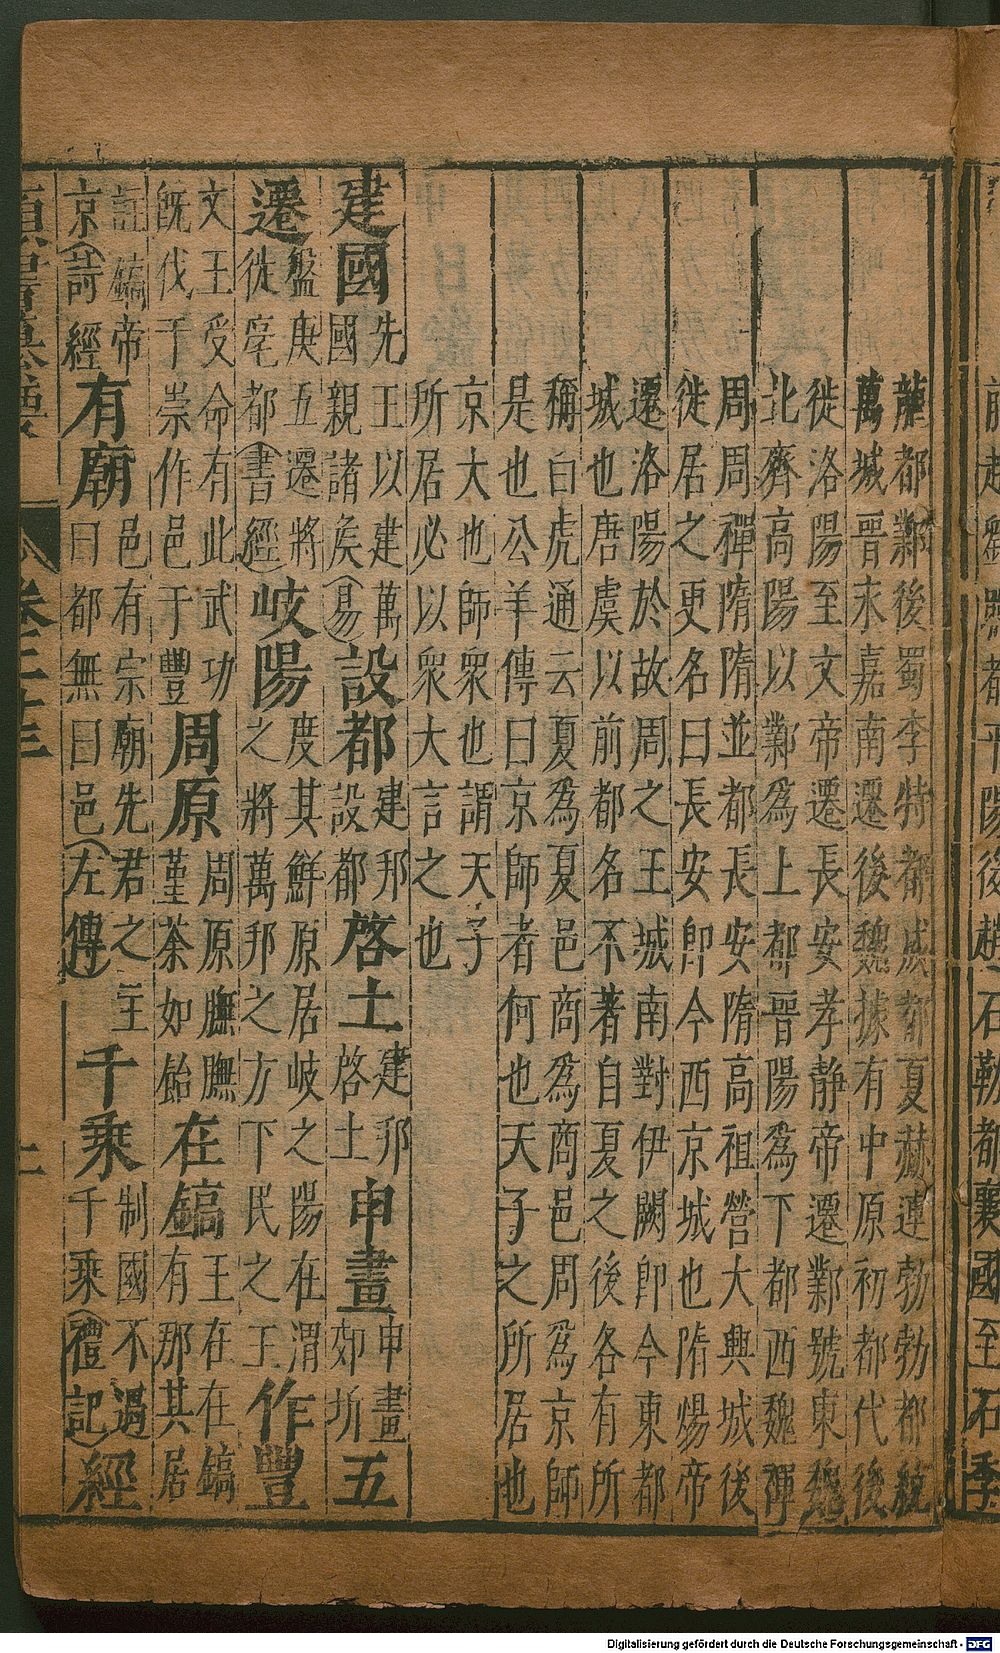 前趙劉淵都平陽後趙石勒都襄國至石季
龍都鄴後蜀李特都成都夏赫連勃勃都統
萬城晉永嘉南遷後魏據有中原初都代後
徙洛陽至文帝遷長安孝静帝遷鄴號東魏
北齊高陽以鄴爲上都晉陽爲下都西魏禪
周周禪隋隋並都長安隋高祖營大興城後
徙居之更名曰長安卽今西京城也隋煬帝
遷洛陽於故周之王城南對伊闕卽今東都
城也唐虞以前都名不著自夏之後各有所
稱白虎通云夏爲夏邑商爲商邑周爲京師
是也公羊傳曰京師者何也天子之所居也
京大也師衆也謂天子
所居必以衆大言之也
建國先王以建萬國親諸矦(易)設都建邦設都啓土建邦啓土申畫申畫郊圻五
遷盤庚五遷將徙亳都(書經)岐陽度其鮮原居岐之陽在渭之將萬邦之方下民之王作豐
文王受命有此武功既伐于崇作邑于豐周原周原膴膴堇荼如飴在鎬王在在鎬有那其居
註鎬帝京(詩經)有廟邑有宗廟先君之主曰都無曰邑(左傳)千乘制國不過千乘(禮記)經
卷三十三